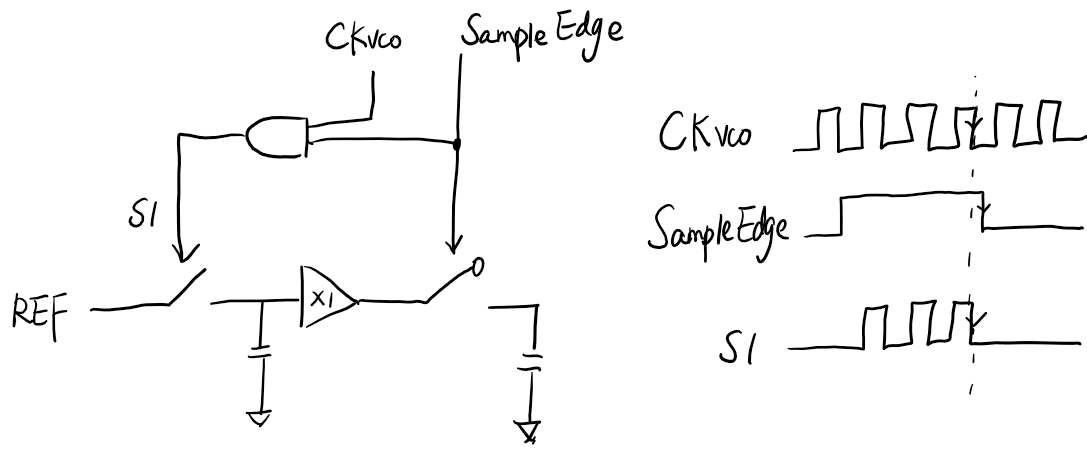 CKvco
Sample Edge
S1
REF
x1
CKvco
Sample Edge
S1